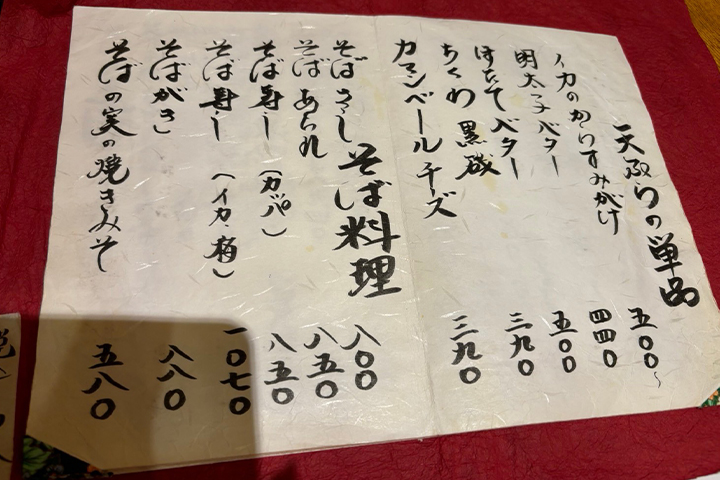 天ぷらの単品
イカのからすみがけ 五〇〇～
明太子バター 四四〇
ほたてバター 五〇〇
ちくわ 黒磯 三九〇
カマンベールチーズ 三九〇
そば料理
そばさし 八〇〇
そばあられ 八五〇
そば寿し（カッパ） 八五〇
そば寿し（イカ、梅） 一〇七〇
そばがき 八八〇
そばの実の焼きみそ 五八〇